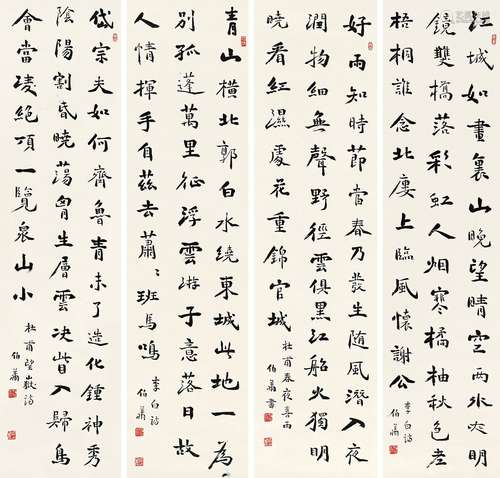 江城如畫裏山晚望晴空兩水夾明
鏡雙橋落彩虹人烟寒橘柚秋色老
梧桐誰念北廔上臨風懷謝公
李白詩
伯翁
好雨知時節當春乃發生隨風潛入夜
潤物細無聲野徑雲俱黑江船火獨明
曉看紅濕處花重錦官城
杜甫春夜喜雨
伯翁書
青山橫北郭白水繞東城此地一為
別孤蓬萬里征浮雲游子意落日故
人情揮手自茲去蕭〻班馬鳴
李白詩
伯翁
岱宗夫如何齊魯青未了造化鍾神秀
陰陽割昏曉蕩胷生層雲決眥入歸鳥
會當凌絕頂一覽衆山小
杜甫望嶽詩
伯翁